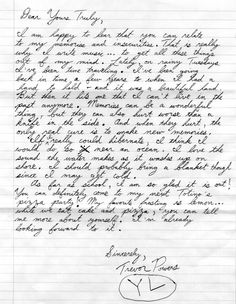 Dear Yours Truly,
I am happy to hear that you can relate
to my memories and insecurities. That is really
why I make music... to get all these things
out of my mind. Lately, on rainy Tuesdays
I've been time traveling. I've been going
back in time a few years to when I had a
hand to hold - and it was a beautiful hand.
But then it hits me that I can't live in the
past anymore. Memories can be a wonderful
thing, but they can also hurt worse than a
knife in the side. And when they hurt, the
only real cure is to make new memories.
If I really could hibernate, I think I
would do so near an ocean. I love the
sound the water makes as it washes up on
shore. I should probably bring a blanket though
since I may get cold.
As far as school, I am so glad it is out!
You can definitely come to my next Totino's
pizza party! My favorite frosting is lemon...
while we eat cake and pizza, you can tell
me more about yourself. I'm already
looking forward to it.
Sincerely,
Trevor Powers
YL